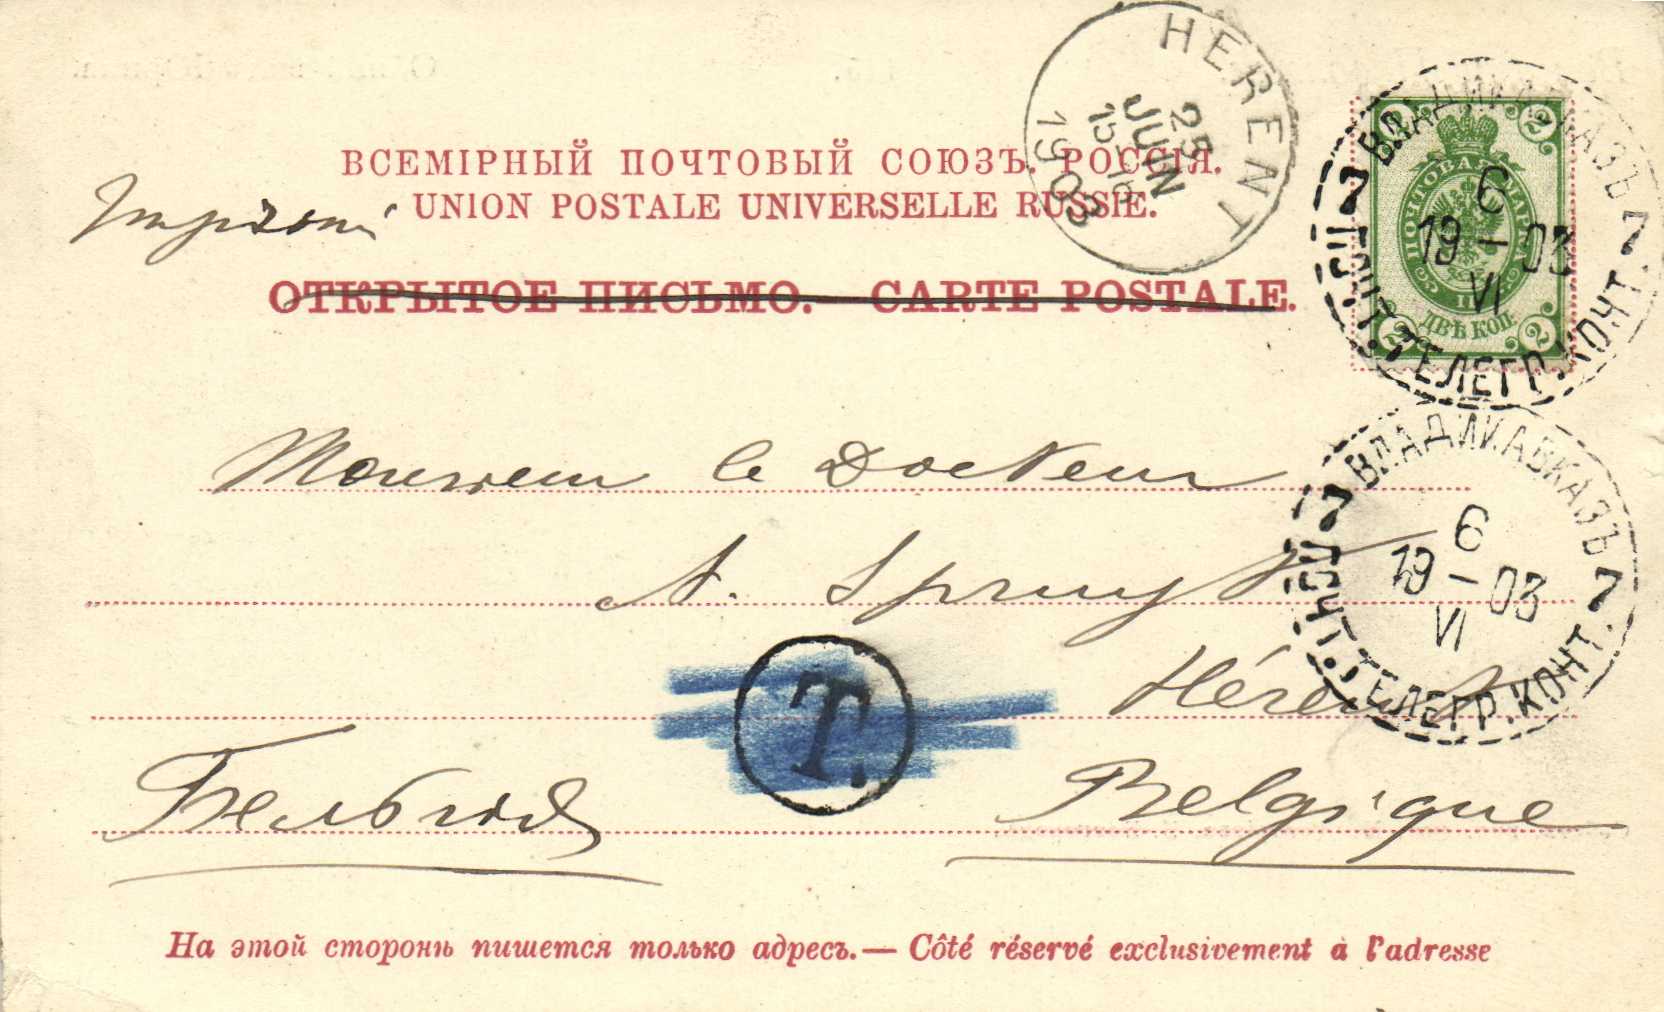 ВСЕМІРНЫЙ ПОЧТОВЫЙ СОЮЗЪ. РОССІЯ.
UNION POSTALE UNIVERSELLE RUSSIE.
ОТКРЫТОЕ ПИСЬМО. — CARTE POSTALE.
HERENT
25
JUIN
15-16
1903
2 2
ПОЧТОВАЯ МАРКА
ДВѢ КОП.
2 2
7 ВЛАДИКАВКАЗЪ 7
6
19 – 03
VI
ПОЧТ. ТЕЛЕГР. КОНТ.
Monsieur le Docteur
A. Spruyt
Hérent
Бельгия Belgique
T.
7 ВЛАДИКАВКАЗЪ 7
6
19 – 03
VI
ПОЧТ. ТЕЛЕГР. КОНТ.
На этой сторонѣ пишется только адресъ. — Côté réservé exclusivement à l'adresse